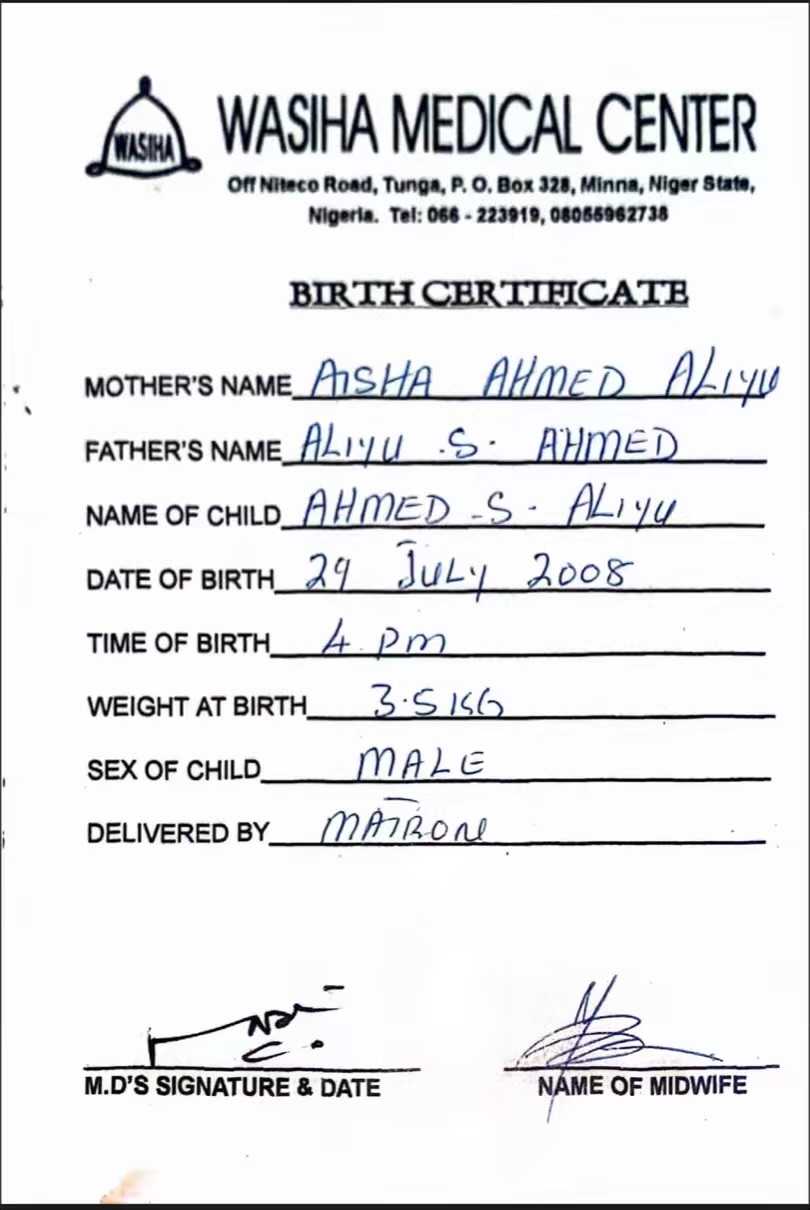 WASIHA
WASIHA MEDICAL CENTER
Off Niteco Road, Tunga, P. O. Box 328, Minna, Niger State,
Nigeria. Tel: 066 - 223919, 08055962738
BIRTH CERTIFICATE
MOTHER'S NAME AISHA AHMED ALIYU
FATHER'S NAME ALIYU .S. AHMED
NAME OF CHILD AHMED -S- ALIYU
DATE OF BIRTH 29 JULY 2008
TIME OF BIRTH 4 pm
WEIGHT AT BIRTH 3.5 KG
SEX OF CHILD MALE
DELIVERED BY MATRON
M.D'S SIGNATURE & DATE
NAME OF MIDWIFE